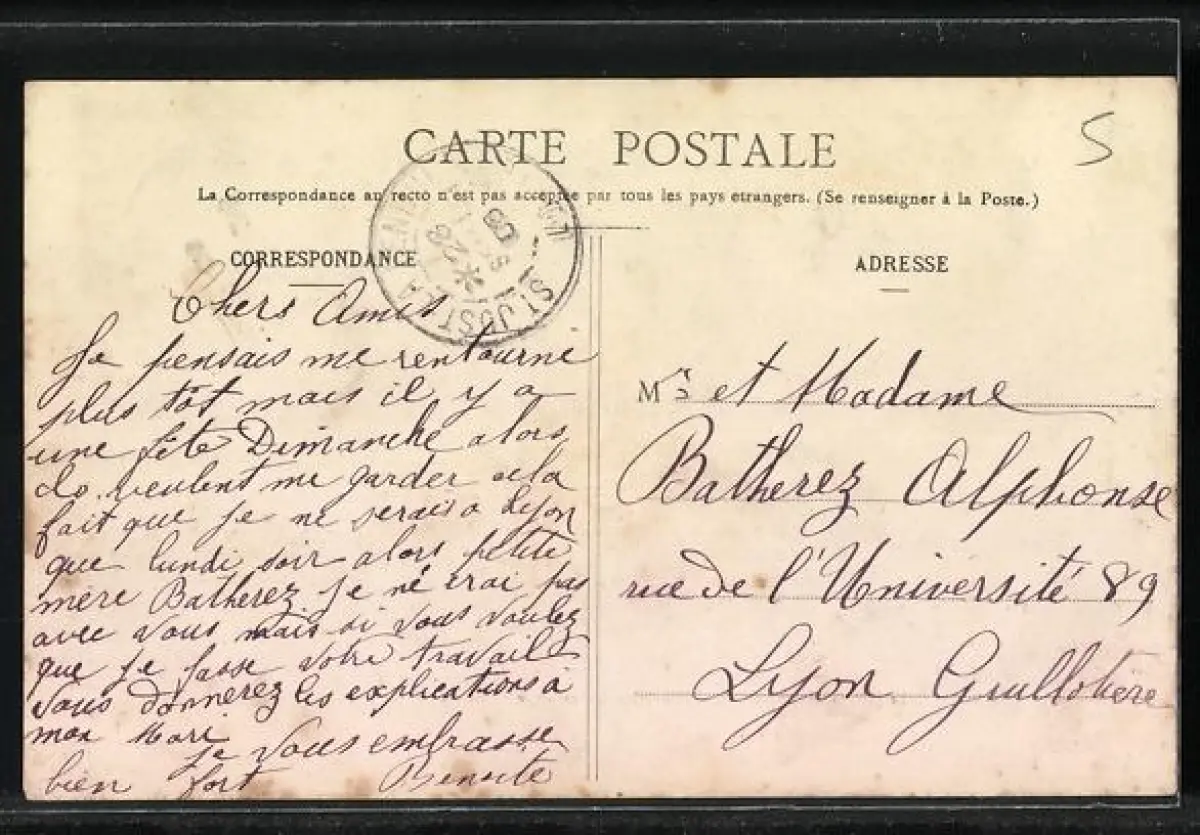 CARTE POSTALE
5
La Correspondance au recto n'est pas acceptée par tous les pays etrangers. (Se renseigner à la Poste.)
CORRESPONDANCE
Chers Amis
Je pensais me rentourne
plus tôt mais il y a
une fête Dimanche alors
veulent me garder cela
fait que je ne serais a Lyon
que lundi soir alors petite
mère Batherez je ne irai pas
avec vous mais si vous voulez
que je fasse votre travail
vous donnerez les explications à
mon Mari
je vous embrasse
bien fort Benoite
ST JUST-LA
28
SEPT
08
ADRESSE
Mrs et Madame
Batherez Alphonse
rue de l'Université 89
Lyon Guillotière